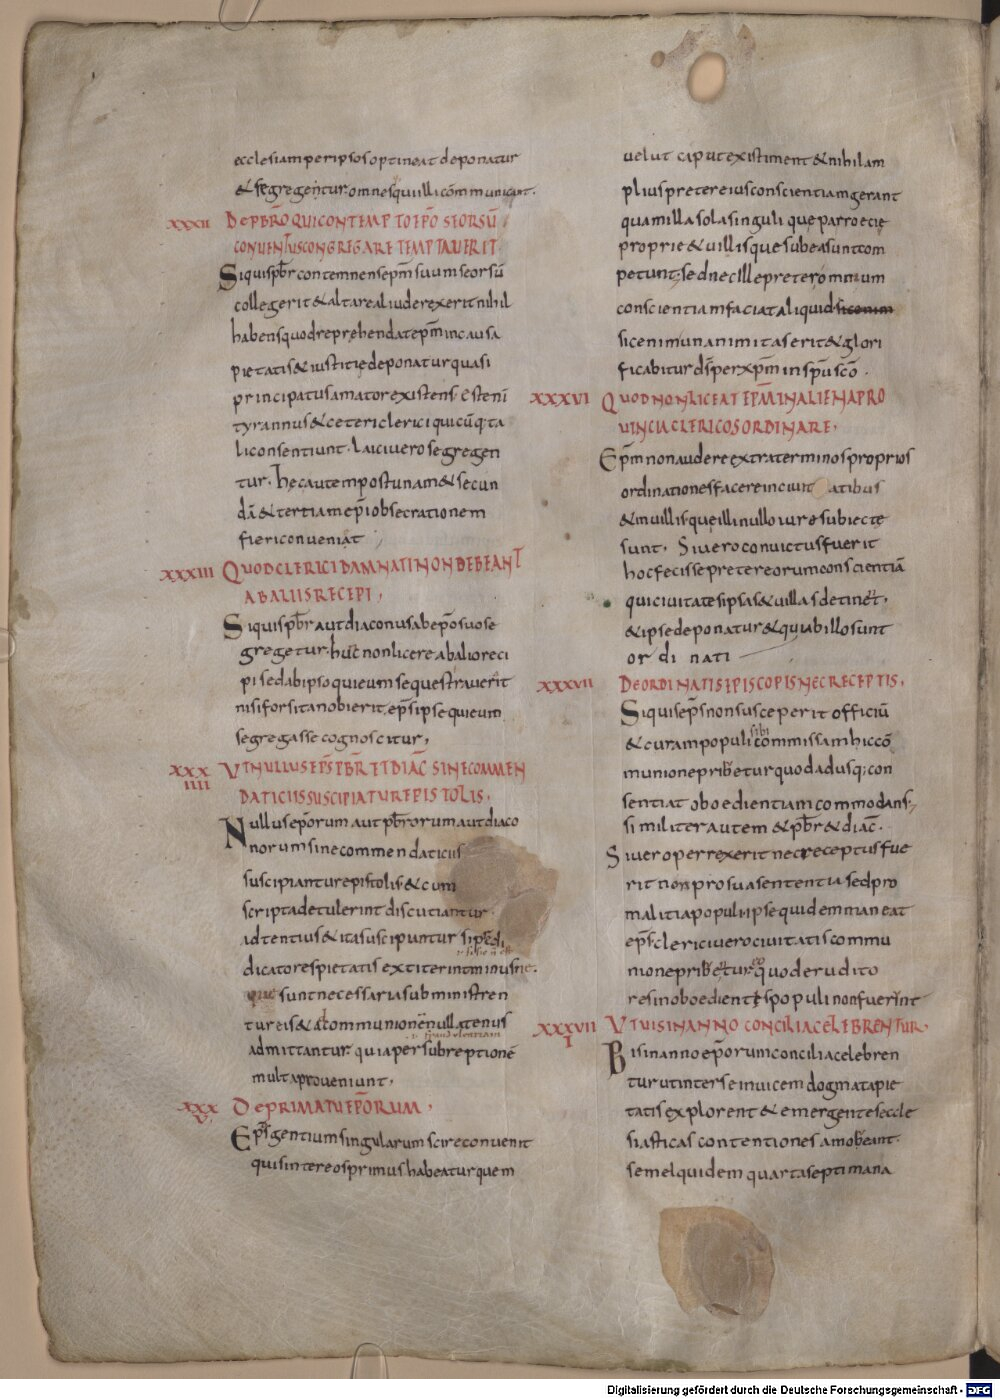 ecclesiam per ipsos optineat deponatur
& segregentur omnes qui illi communicant.
XXXII DE P̅B̅R̅O QUI CONTEMPTO EP̅O SEORSU̅
CONUENTUS CONGREGARE TEMPTAUERIT
Siquis p̅b̅r contemnens ep̅m suum seorsu̅
collegerit & altare aliud erexerit nihil
habens quod reprehendat ep̅m in causa
pietatis & iustitie deponatur quasi
principatus amator existens. est eni̅
tyrannus & ceteri clerici quicu̅q; ta
li consentiunt. laici uero segregen
tur. hęc autem post unam & secun
da̅ & tertiam ep̅i obsecrationem
fieri conueniat
XXXIII QUOD CLERICI DAMNATI NON DEBEANT
AB ALIIS RECEPI,
Siquis p̅b̅r aut diaconus ab ep̅o suo se
gregetur. hunc non licere ab alio reci
pi sed ab ipso qui eum sequestrauerit
nisi forsitan obierit. ep̅s ipse qui eum
segregasse cognoscitur,
XXXIIII UT NULLUS EP̅S P̅B̅R ET DIAC̅ SINE COMMEN
DATICIIS SUSCIPIATUR EPISTOLIS.
Nullus ep̅orum aut p̅b̅rorum aut diaco
norum sine commendaticiis
suscipiantur epistolis & cum
scripta detulerint discutiantur
adtentius & ita suscipiuntur si p̅di
dicatores pietatis extiterint minusne.
que sunt necessaria subministren
tur eis & ad communione̅ nullatenus
admittantur. quia per subreptione̅
multa proueniunt,
XXXV DE PRIMATU EP̅ORUM,
Ep̅s gentium singularum scire conuenit
quis inter eos primus habeatur quem
uelut caput existiment & nihil am
plius preter eius conscientiam gerant
quam illa sola singuli que parroecie
proprie & uillis que sub ea sunt com
petunt; sed nec ille preter omnium
conscientiam faciat aliquid
sic enim unanimitas erit & glori
ficabitur d̅s per xp̅m in sp̅u sc̅o.
XXXVI QUOD NON LICEAT EP̅M IN ALIENA PRO
UINCIA CLERICOS ORDINARE.
Ep̅m non audere extra terminos proprios
ordinationes facere in ciuitatibus
& in uillis que illi nullo iure subiecte
sunt. Si uero conuictus fuerit
hoc fecisse preter eorum conscientia̅
qui ciuitates ipsas & uillas detinet.
& ipse deponatur & qui ab illo sunt
ordinati
XXXVII DE ORDINATIS EPISCOPIS NEC RECEPTIS.
Siquis ep̅s non susceperit officiu̅
& curam populi sibi commissam hic co̅
munione priuetur quo adusq; con
sentiat oboedientiam commodans
similiter autem & p̅b̅r & diac̅.
Si uero perrexerit nec receptus fue
rit non pro sua sententia sed pro
malitia populi ipse quidem maneat
ep̅s. clerici uero ciuitatis commu
nione priuetur eo quod erudito
res inoboedientis populi non fuerint
XXXVIII UT UIS IN ANNO CONCILIA CELEBRENTUR.
Bis in anno ep̅orum concilia celebren
tur ut inter se inuicem dogmata pie
tatis explorent & emergentes eccle
siasticas contentiones amoueant.
semel quidem quarta septimana
Digitalisierung gefördert durch die Deutsche Forschungsgemeinschaft - DFG